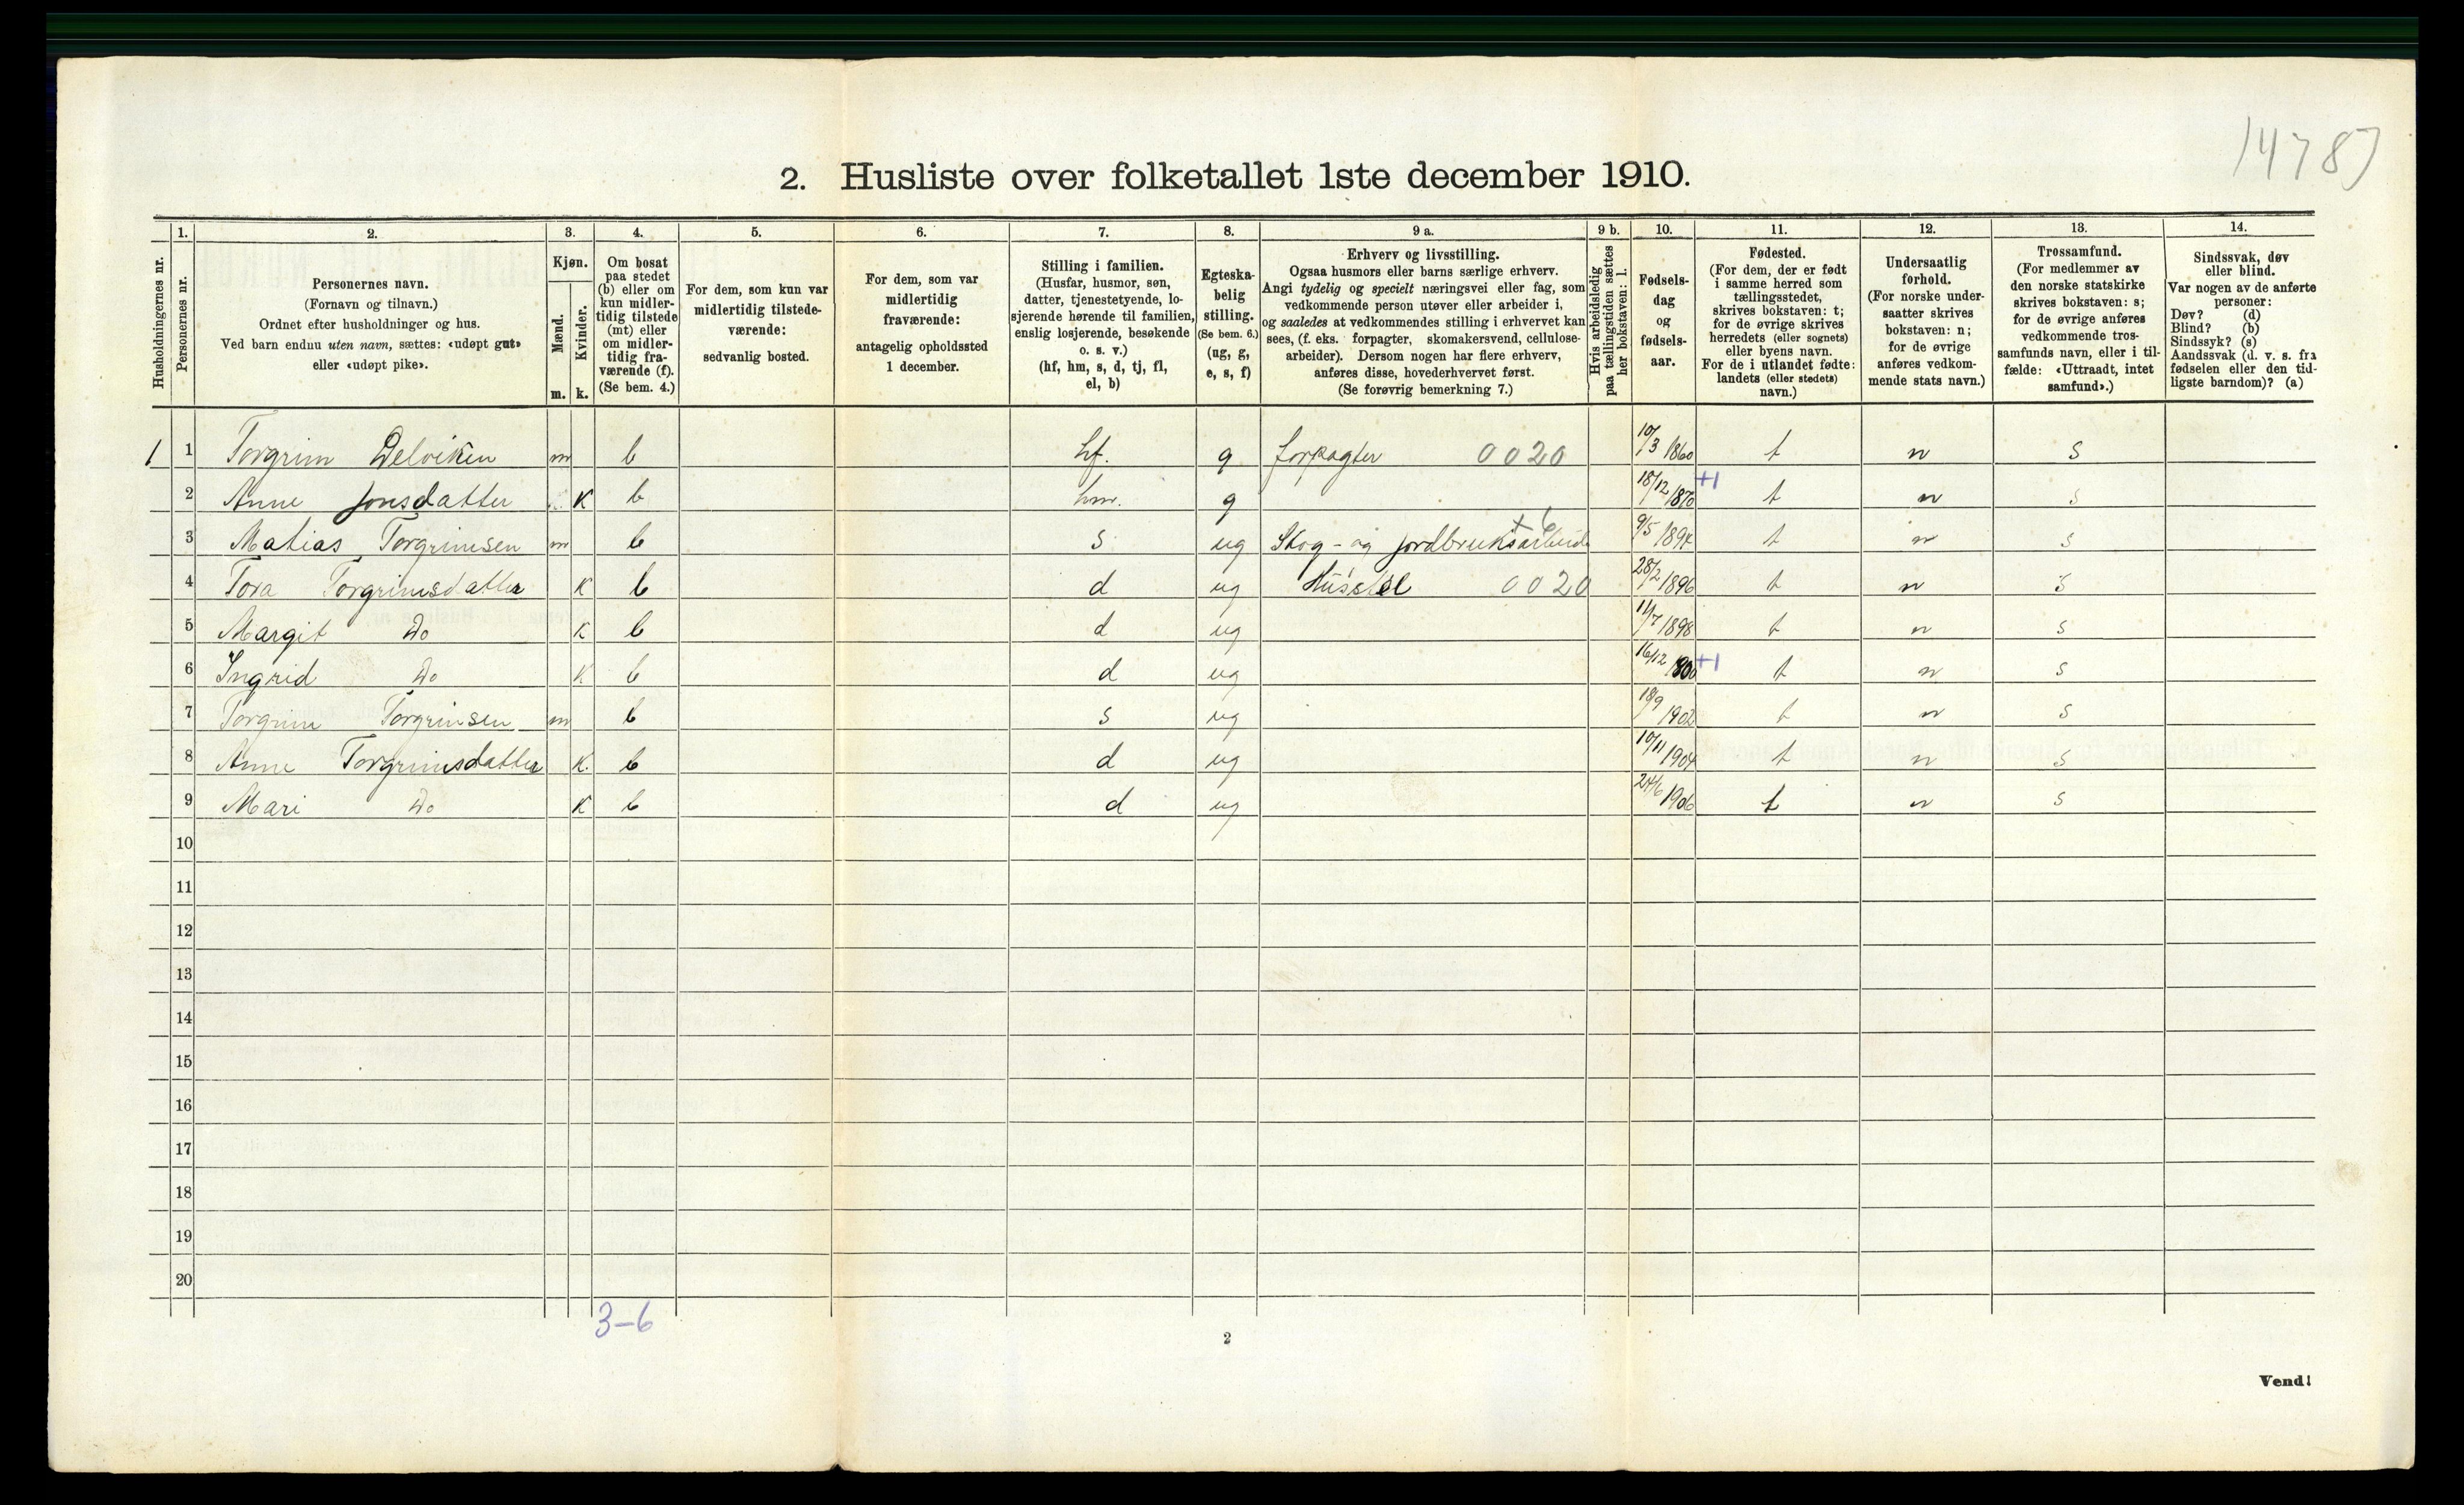 1478)
2. Husliste over folketallet 1ste december 1910.
Husholdningernes nr.
1. Personernes nr.
2. Personernes navn.
(Fornavn og tilnavn.)
Ordnet efter husholdninger og hus.
Ved barn endnu uten navn, sættes: «udøpt gut»
eller «udøpt pike».
3. Kjøn.
Mænd. Kvinder.
m. k.
4. Om bosat
paa stedet
(b) eller om
kun midler-
tidig tilstede
(mt) eller
om midler-
tidig fra-
værende (f).
(Se bem. 4.)
5. For dem, som kun var
midlertidig tilstede-
værende:
sedvanlig bosted.
6. For dem, som var
midlertidig
fraværende:
antagelig opholdssted
1 december.
7. Stilling i familien.
(Husfar, husmor, søn,
datter, tjenestetyende, lo-
sjerende hørende til familien,
enslig losjerende, besøkende
o. s. v.)
(hf, hm, s, d, tj, fl,
el, b)
8. Egteska-
belig
stilling.
(Se bem. 6.)
(ug, g,
e, s, f)
9 a. Erhverv og livsstilling.
Ogsaa husmors eller barns særlige erhverv.
Angi tydelig og specielt næringsvei eller fag, som
vedkommende person utøver eller arbeider i,
og saaledes at vedkommendes stilling i erhvervet kan
sees, (f. eks. forpagter, skomakersvend, cellulose-
arbeider). Dersom nogen har flere erhverv,
anføres disse, hovederhvervet først.
(Se forøvrig bemerkning 7.)
9 b. Hvis arbeidsledig
paa tællingstiden sættes
her bokstaven: l.
10. Fødsels-
dag
og
fødsels-
aar.
11. Fødested.
(For dem, der er født
i samme herred som
tællingsstedet,
skrives bokstaven: t;
for de øvrige skrives
herredets (eller sognets)
eller byens navn.
For de i utlandet fødte:
landets (eller stedets)
navn.)
12. Undersaatlig
forhold.
(For norske under-
saatter skrives
bokstaven: n;
for de øvrige
anføres vedkom-
mende stats navn.)
13. Trossamfund.
(For medlemmer av
den norske statskirke
skrives bokstaven: s;
for de øvrige anføres
vedkommende tros-
samfunds navn, eller i til-
fælde: «Uttraadt, intet
samfund».)
14. Sindssvak, døv
eller blind.
Var nogen av de anførte
personer:
Døv? (d)
Blind? (b)
Sindssyk? (s)
Aandssvak (d. v. s. fra
fødselen eller den tid-
ligste barndom)? (a)
1 1 Torgrim Delviken m b hf. g forpagter 0020 10/3 1860 t n s
2 Anne Jonsdatter k b hm. g 18/12 1870 +1 t n s
3 Matias Torgrimsen m b s ug Skog- og jordbruksarbeid +6 9/5 1894 t n s
4 Tora Torgrimsdatter k b d ug Husstel 0020 28/2 1896 t n s
5 Margit Do k b d ug 11/7 1898 t n s
6 Ingrid Do k b d ug 16/12 1900 +1 t n s
7 Torgrim Torgrimsen m b s ug 18/9 1902 t n s
8 Anne Torgrimsdatter k b d ug 10/11 1904 t n s
9 Mari Do k b d ug 24/6 1906 t n s
10
11
12
13
14
15
16
17
18
19
20
3-6
2
Vend!